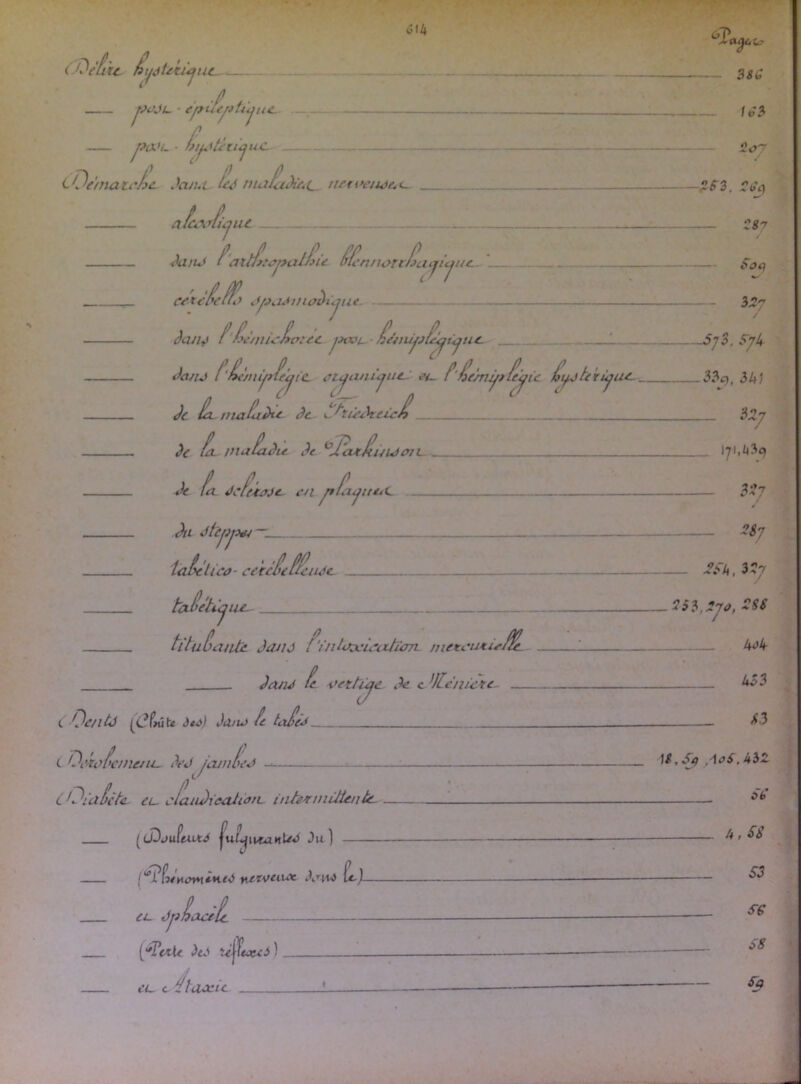 614
Pages
Délire hystérique 386
___ post-épileptique 163
___ post-hystérique 207
Démarche dans les maladies nerveuses 253, 269
___ alcoolique 287
___ dans l'arthropathie blennorrhagique 509
___ cérébello spasmodique 327
___ dans l'hémichorée post-hémiplégique 573, 574
___ dans l'hémiplégie organique et l'hémiplégie hystérique 339, 341
___ de la maladie de Friedreich 327
___ de la maladie de Parkinson 171, 439
___ de la sclérose en plaques 327
___ du steppeur 287
___ tabético-cérébelleuse 254, 327
___ tabétique 253, 270, 288
___ titubante dans l'intoxication mercurielle 404
___ ___ dans le vertige de Ménière 453
Dents (Chûte des) dans le tabès 83
Dérobement des jambes 18, 59, 105, 432
Diabète et claudication intermittente 56
___ (Douleurs fulgurantes du) 4, 58
___ (Phénomènes nerveux dans le) 53
___ et sphacèle 56
___ (Perte des réflexes) 58
___ et Ataxie 59